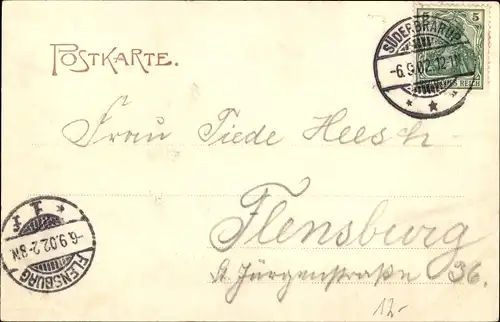 POSTKARTE.
5 5
SÜDERBRARUP
-6.9.02.12-1N
REICH
Frau Tiede Heesch
Flensburg
St. Jürgenstraße 36.
12.-
* F *
-6.9.02.2-3N
FLENSBURG